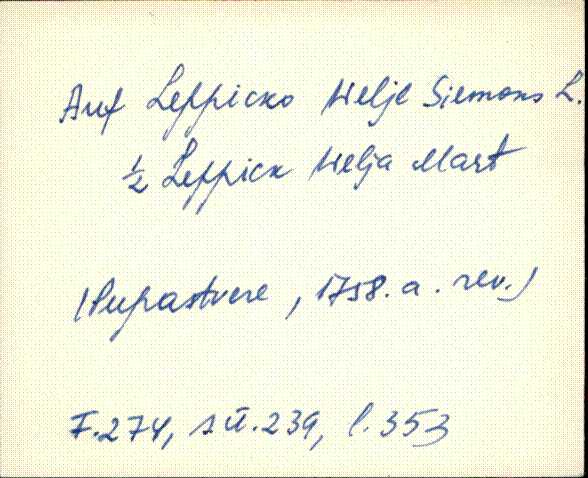 Auf Leppicko Welje Siemons L.
½ Leppick Welja Mart
(Pupastvere, 1758. a. rev.)
F. 274, s ü. 239, l. 353